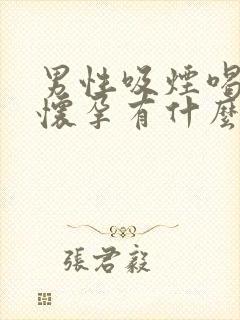 男性吸煙喝
懷孕有什麼
張君毅